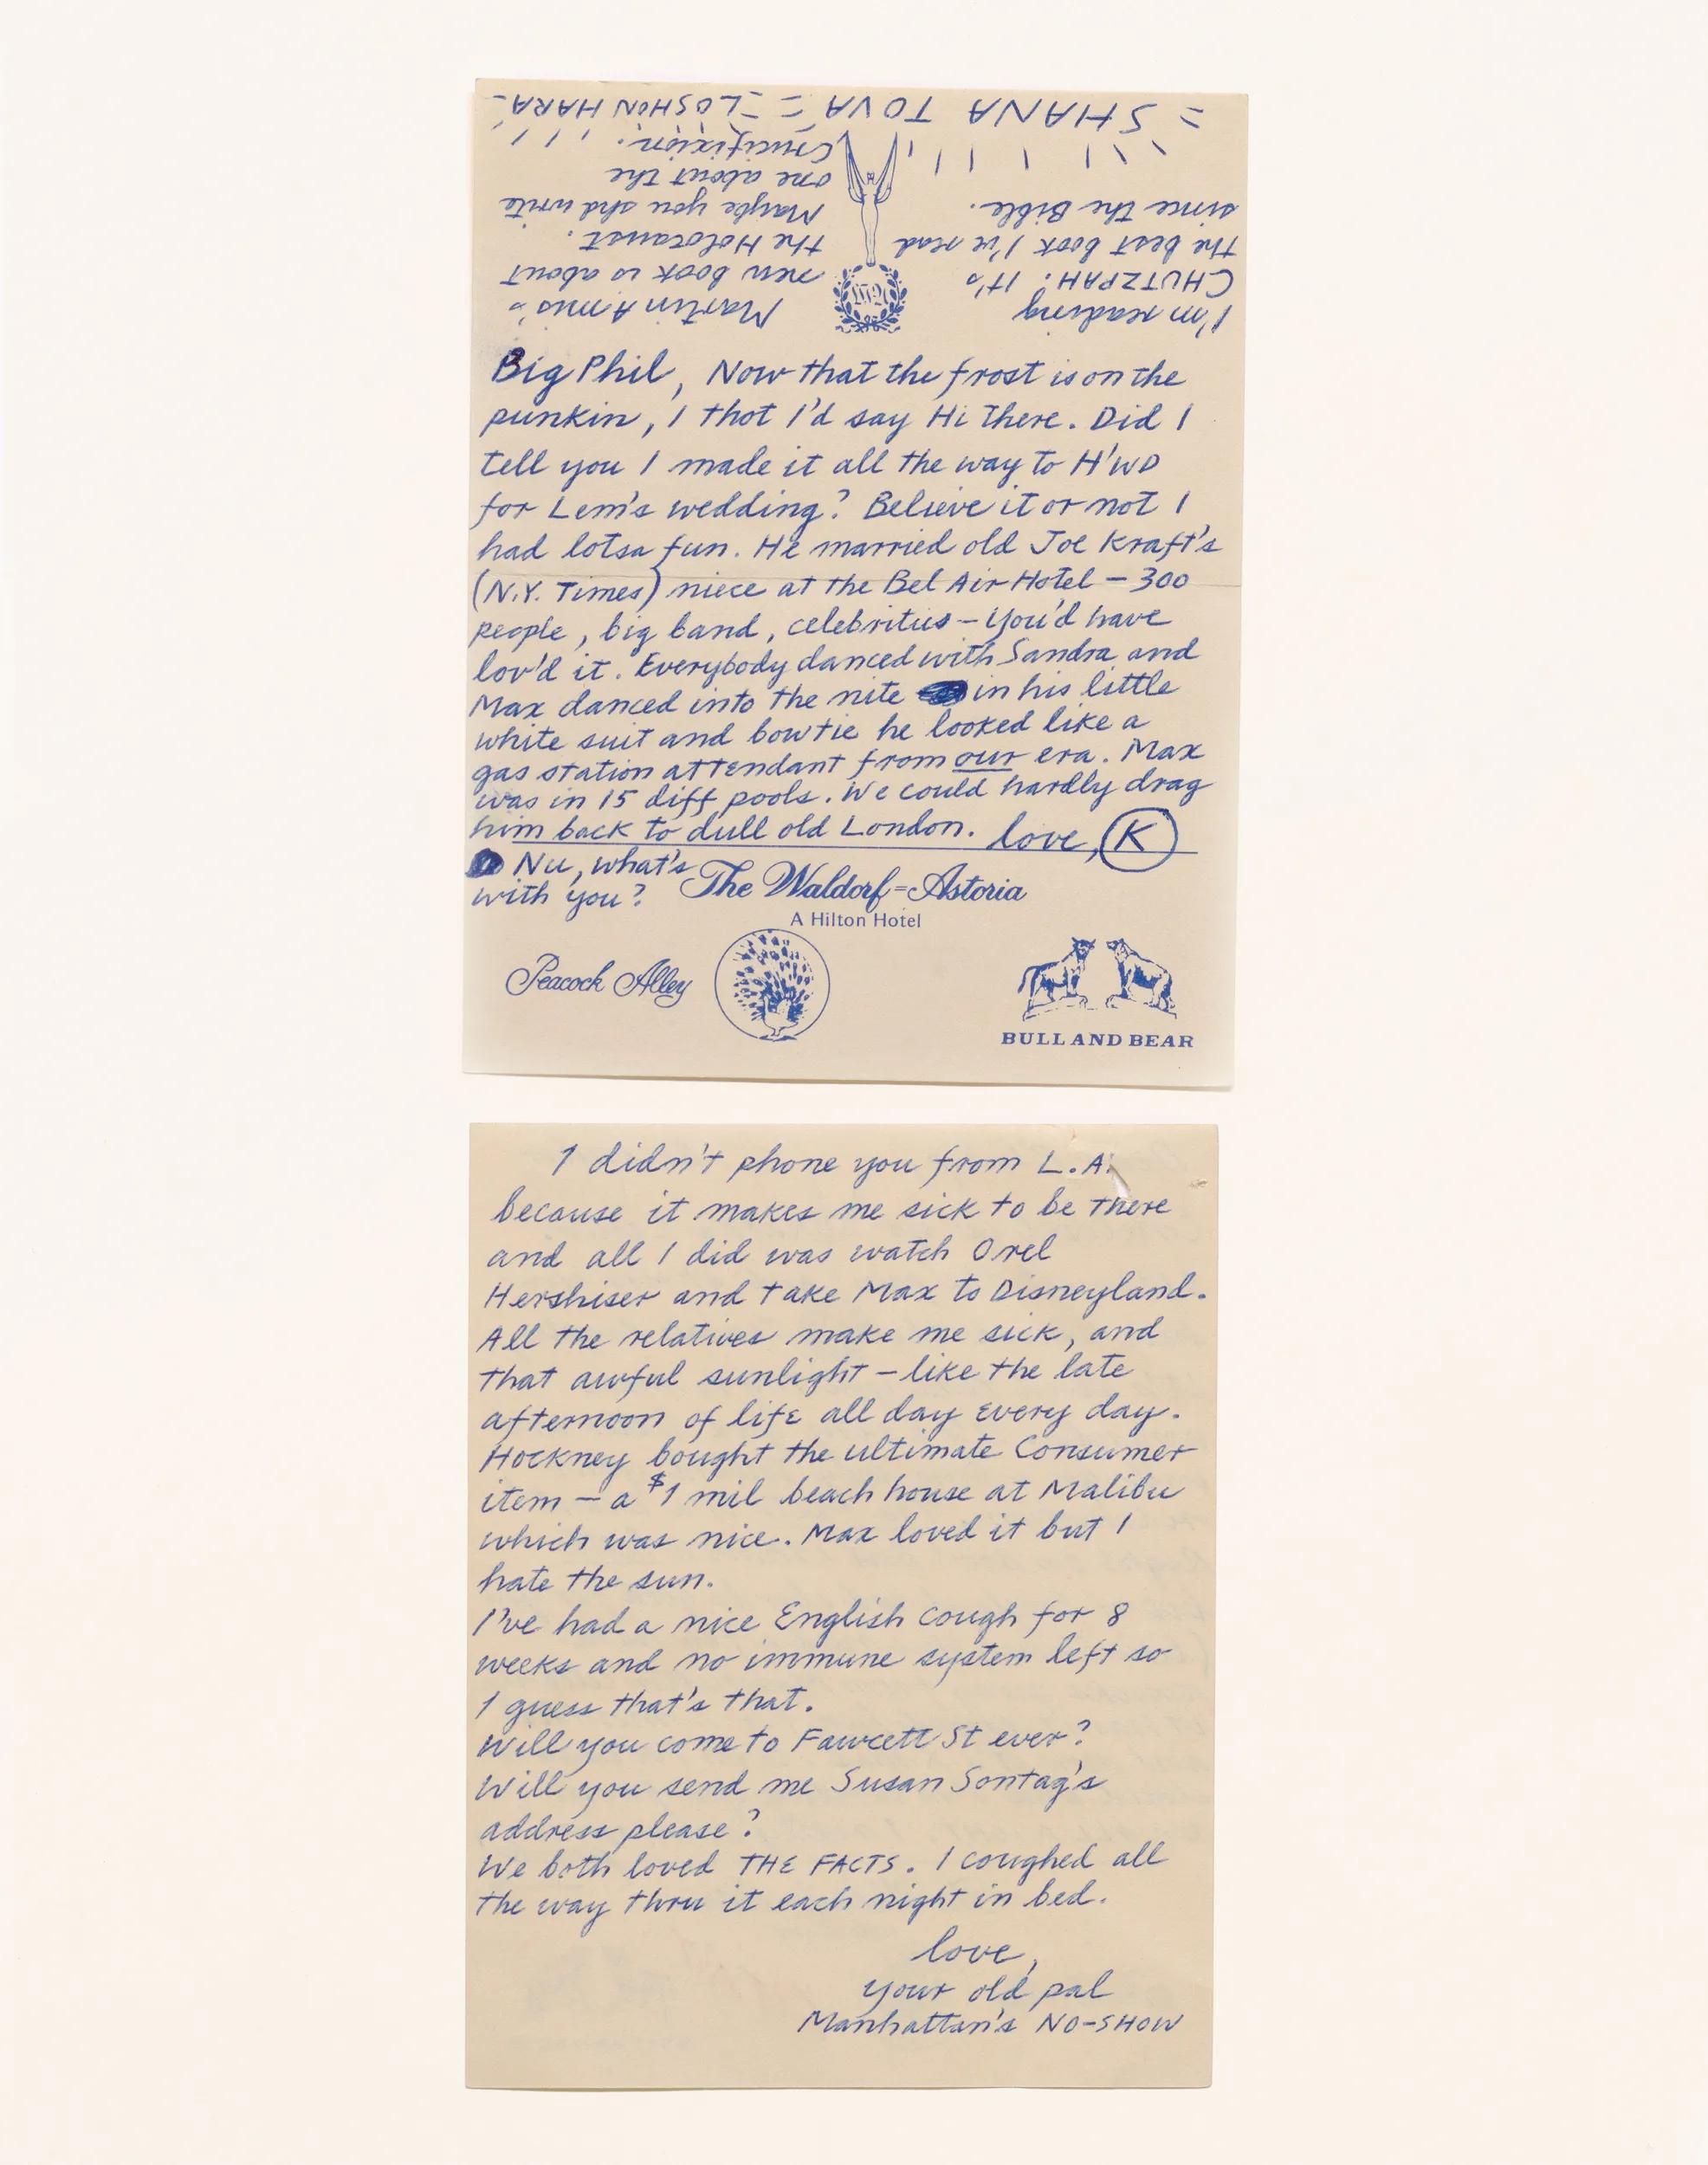 = SHANA TOVA = LOSHON HARA –
I'm reading
CHUTZPAH! It's
the best book I've read
since the Bible.
Martin Amis's
new book is about
the Holocaust.
Maybe you shd write
one about the
Crucifixion.
Big Phil, Now that the frost is on the
punkin, I thot I'd say Hi There. Did I
tell you I made it all the way to H'WD
for Lem's wedding? Believe it or not I
had lotsa fun. He married old Joe Kraft's
(N.Y. Times) niece at the Bel Air Hotel – 300
people, big band, celebrities – You'd have
lov'd it. Everybody danced with Sandra and
Max danced into the nite in his little
white suit and bowtie he looked like a
gas station attendant from our era. Max
was in 15 diff pools. We could hardly drag
him back to dull old London. love, K
Nu, what's
with you?
The Waldorf=Astoria
A Hilton Hotel
Peacock Alley
BULL AND BEAR
I didn't phone you from L.A.
because it makes me sick to be there
and all I did was watch Orel
Hershiser and take Max to Disneyland.
All the relatives make me sick, and
that awful sunlight – like the late
afternoon of life all day every day.
Hockney bought the ultimate Consumer
item – a $1 mil beach house at Malibu
which was nice. Max loved it but I
hate the sun.
I've had a nice English cough for 8
weeks and no immune system left so
I guess that's that.
Will you come to Fawcett St ever?
Will you send me Susan Sontag's
address please?
We both loved THE FACTS. I coughed all
the way thru it each night in bed.
love,
your old pal
Manhattan's NO-SHOW